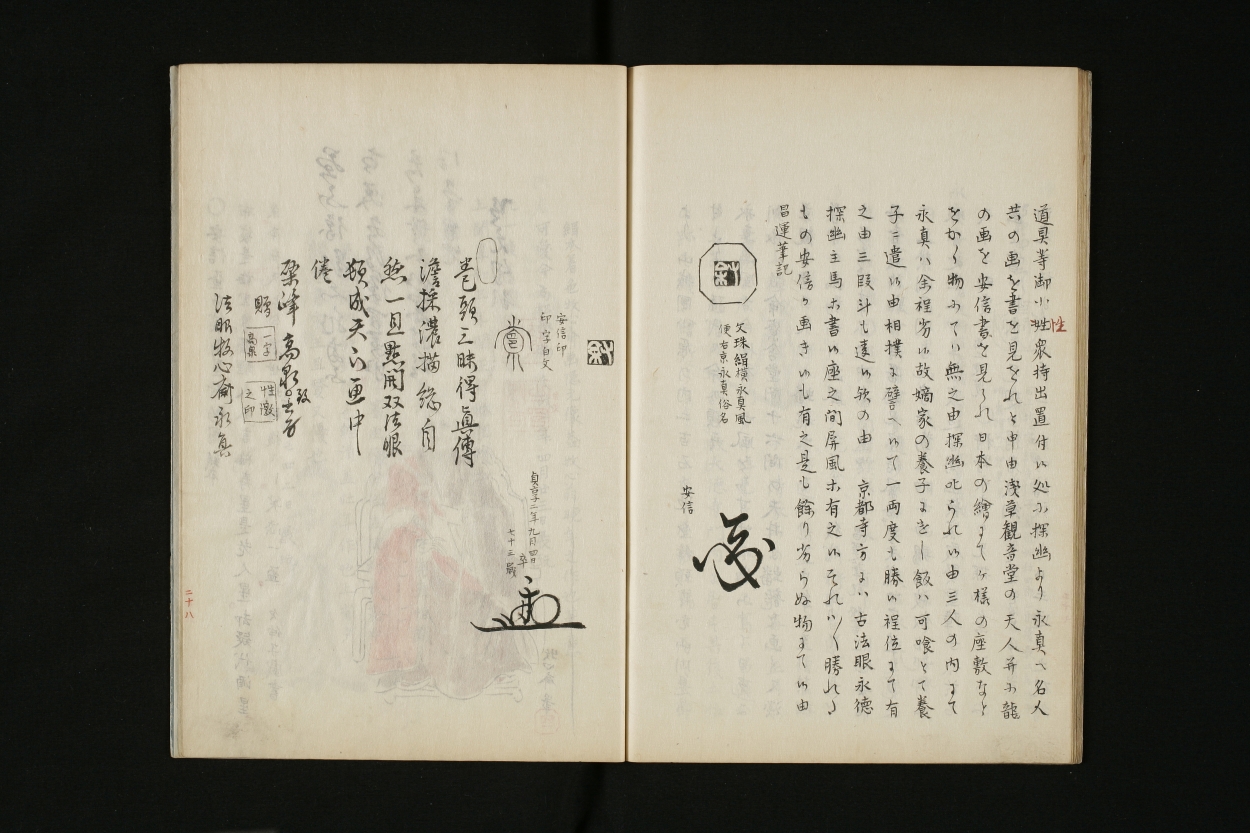 道具等御小姓衆持出置付候処ニ探幽より永真ヘ名人
性
共の画を書を見をれと申由浅草観音堂の天人并ニ龍
の画を安信書を見られ日本の繪にてヶ様の座敷など
をかく物にてハ無之由探幽叱られ候由三人の内にて
永真ハ余程劣候故嫡家の養子にをし飯ハ可喰とて養
子ニ遣候由相撲に譬へ候て一両度も勝候程位にて有
之由三段斗も違候欤の由 京都寺方にハ古法眼永徳
探幽主馬ホ書候座之間屏風ホ有之候それハ〳〵勝れる
もの安信の画きいも有之是も餘り劣らぬ物にて候由
昌運筆記
文珠絹横永真風
便右京永真俗名
安信
安信印
印字白文
巻頭三昧得眞傳
澹採濃描總自
然一旦點開双法眼
頻成天 画中
倦
高泉
贈
一字
高泉
性潡
之印
法眼牧心齋永真
貞享二年九月四日
卒
七十三歳
二十八